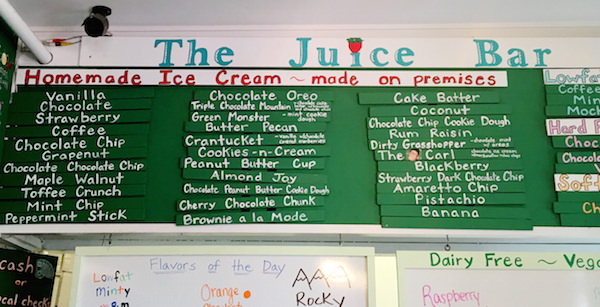 The Juice Bar
Homemade Ice Cream ~ made on premises
Vanilla
Chocolate
Strawberry
Coffee
Chocolate Chip
Grapenut
Chocolate Chocolate Chip
Maple Walnut
Toffee Crunch
Mint Chip
Peppermint Stick
Chocolate Oreo
Triple Chocolate Mountain
Green Monster - mint cookie dough
Butter Pecan
Crantucket
Cookies-n-Cream
Peanut Butter Cup
Almond Joy
Chocolate Peanut Butter Cookie Dough
Cherry Chocolate Chunk
Brownie a la Mode
Cake Batter
Coconut
Chocolate Chip Cookie Dough
Rum Raisin
Dirty Grasshopper
The Carl
Blackberry
Strawberry Dark Chocolate Chip
Amaretto Chip
Pistachio
Banana
Lowfat
Coffee
Min
Moch
Hard F
Choc
Chocola
Soft
Cho
cash or
cal checks
Flavors of the Day
Lowfat
minty
Orange
Rocky
Dairy Free ~ Vega
Raspberry